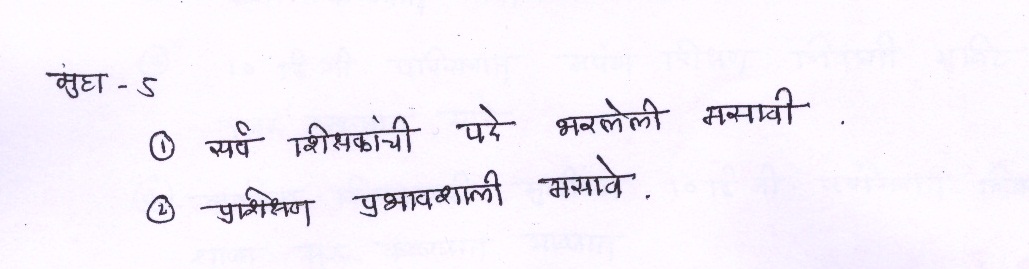 मुद्दा - 5
① सर्व शिक्षकांची पदे भरलेली असावी .
② प्रशिक्षण प्रभावशाली असावे .